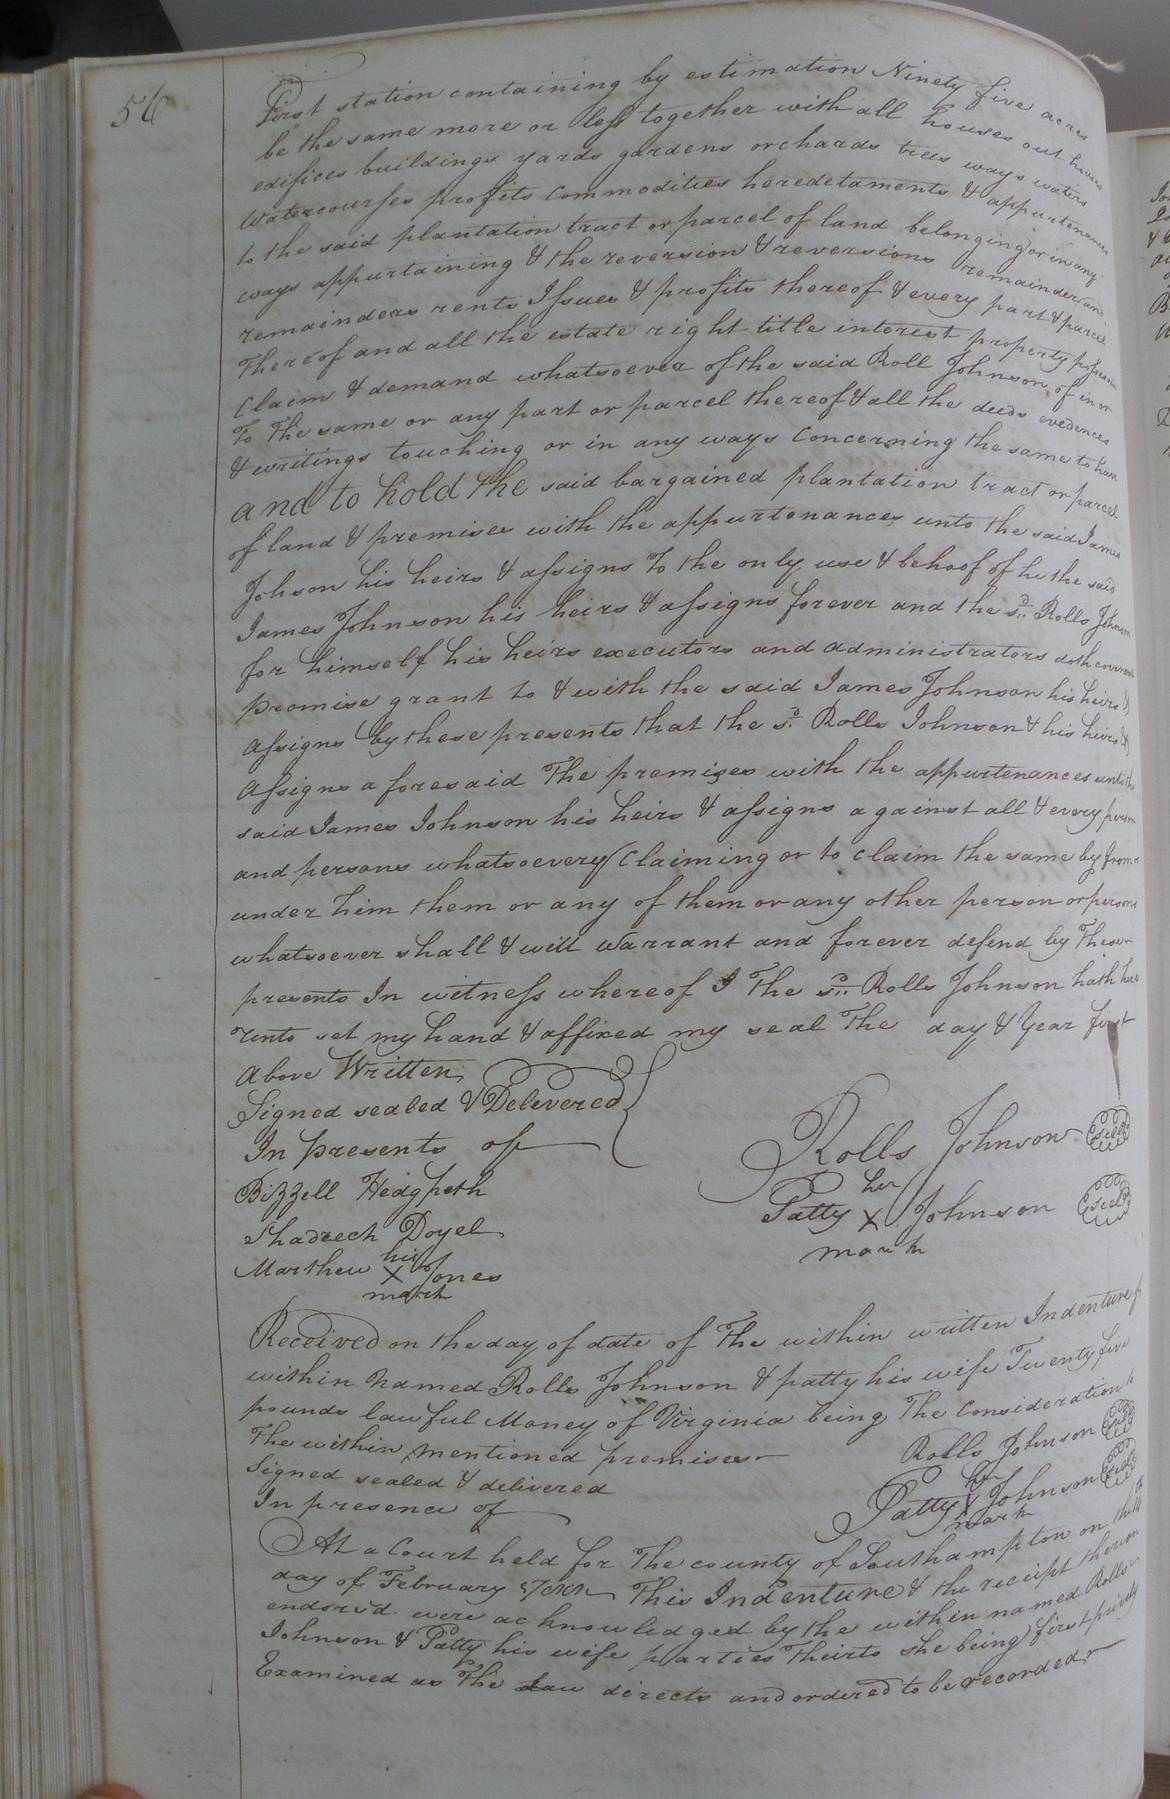 56
First station containing by estimation Ninety five acres
be the same more or less together with all houses out houses
edifices buildings yards gardens orchards trees ways waters
Watercourses profits Commodities heredetaments & appurtenances
to the said plantation tract or parcel of land belonging or in any
ways appurtaining & the reversion & reversions remainder and
remainders rents Issues & profits thereof & every part & parcel
Thereof and all the estate right title interest property possession
Claim & demand whatsoever of the said Roll Johnson of in or
To The same or any part or parcel thereof & all the deeds evedences
& writings touching or in any ways Concerning the same to have
and to hold the said bargained plantation tract or parcel
of land & premises with the appurtonances unto the said James
Johson his heirs & assigns To the only use & behoof of he the said
James Johnson his heirs & assigns forever and the sd. Rolls Johnson
for himself his heirs executors and administrators doth
promise grant to & with the said James Johnson his heirs &
Assigns by these presents that the sd. Rolls Johnson & his heirs &
Assigns aforesaid The premises with the appurtenances unto the
said James Johnson his heirs & assigns against all & every person
and persons whatsoevery Claiming or to Claim the same by from or
under him them or any of them or any other person or persons
whatsoever shall & will Warrant and forever defend by These
presents In witness whereof I The sd. Rolls Johnson hath
unto set my hand & affixed my seal The day & Year first
Above Written
Signed sealed & Delevered
In presents of
Rolls Johnson Seal
Bizzell Hedgpeth
her
Patty X Johnson Seal
mark
Shadrech Doyel
his
Marthew X Jones
mark
Received on the day of date of The within written Indenture
within Named Rolls Johnson & patty his wife Twenty five
pounds lawful Money of Virginia being The Consideration
The within mentioned premises
Rolls Johnson Seal
Signed sealed & delivered
In presence of
her
Patty X Johnson Seal
mark
At a Court held for The county of Southampton on the
day of February This Indenture & the receipt thereon
endorsd were acknowledged by the within named Rolls
Johnson & Patty his wife parties Theirto she being first privily
Examined as The Law directs and ordered to be recorded